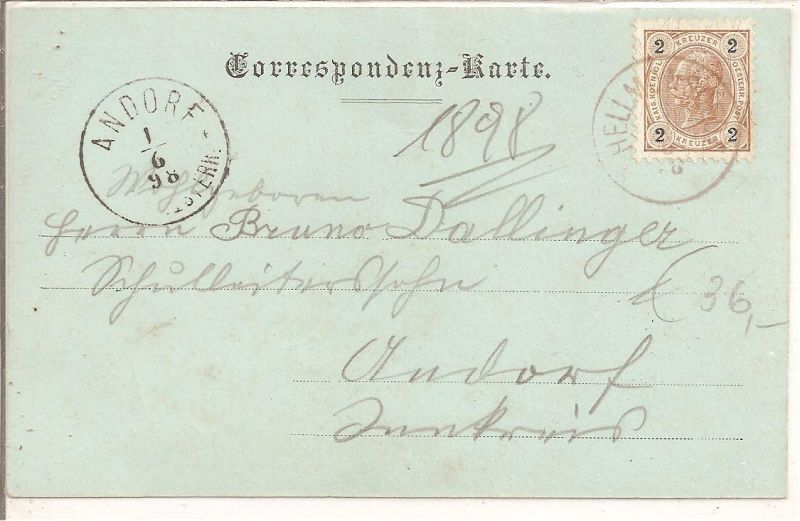 Correspondenz-Karte.
2 KREUZER 2
KAIS. KOENIGL. OESTERR. POST
2 KREUZER 2
HELL
ANDORF
1
6
98
1898
Wohlgeboren
Herrn Bruno Dallinger
Schulleiterssohn
36,-
Andorf
Innkreis